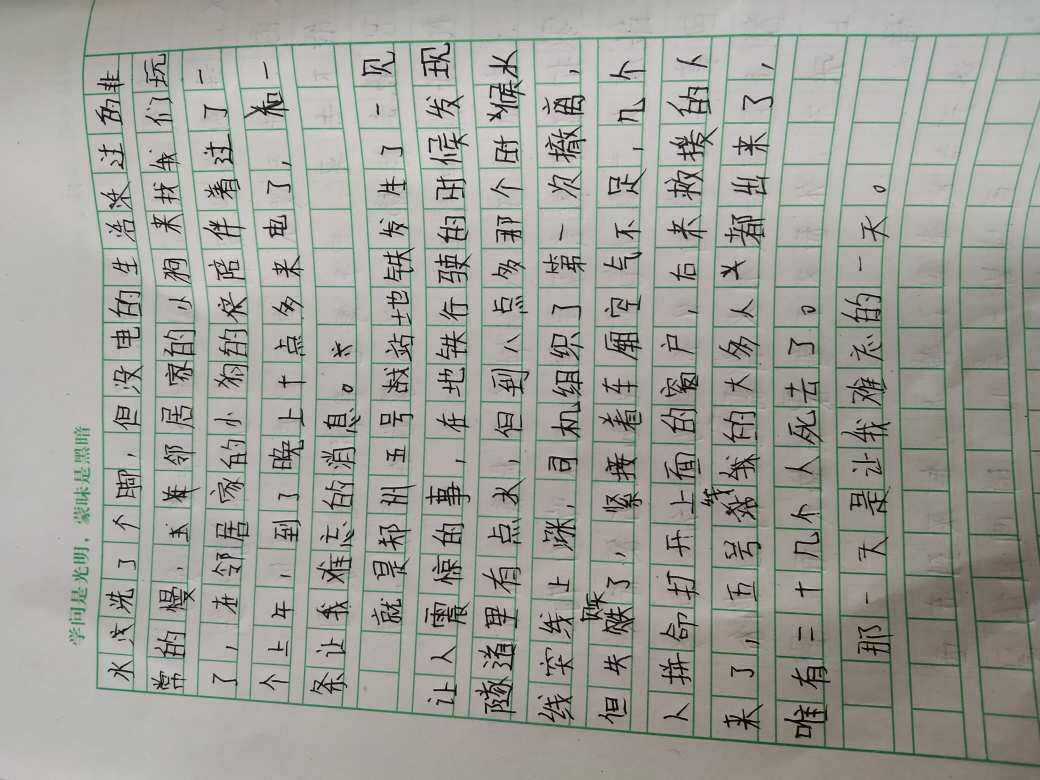 学问是光明，蒙昧是黑暗
水，洗了个脚，但没电的生活过的非
常的慢，邻居家的小狗来找我们玩
了，在邻居家的小狗的陪伴着过了一
个上午，到了晚上十点多来电了，和一
条让我难忘的消息。
就是郑州五号战站地铁发生了一见
让人震惊的事，在地铁行驶的时候发现
隧道里有点水，但到八点多那个时候水
线实线上踩，司机组织了第一次撤离，
但失败了，紧接着车厢空气不足，几个
人拼命扣开上面的窗户，右来救援的人
来了，五号线的大多人都出来了，
唯有二十几个人死去了。
那一天是让我难忘的一天。